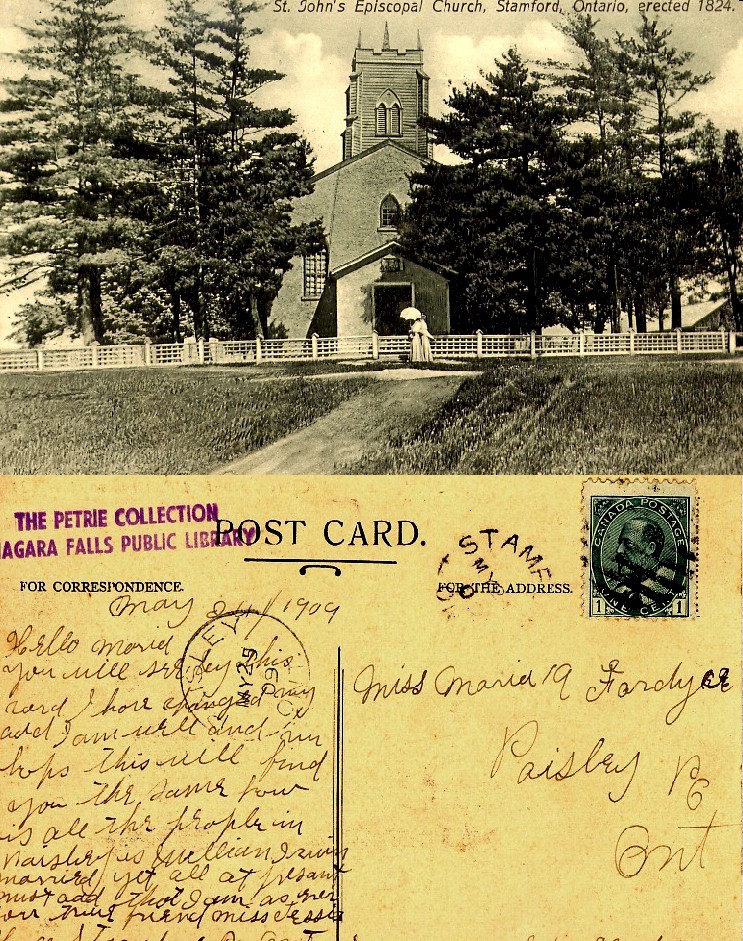 St. John's Episcopal Church, Stamford, Ontario, erected 1824.
THE PETRIE COLLECTION
AGARA FALLS PUBLIC LIBRARY
POST CARD.
FOR CORRESPONDENCE.
FOR THE ADDRESS.
STAMF
CANADA POSTAGE
1 ONE CENT 1
May 24/1909
SLEY
MY 25
Hello Marid
you will see by this
card I have changed my
add I am well and in
hops this will find
you the same how
is all the people in
Paisley is William Irwin
married yet all at present
must add that I am as ever
your true friend miss Jessie
Miss Marid
Paisley PO
Ont